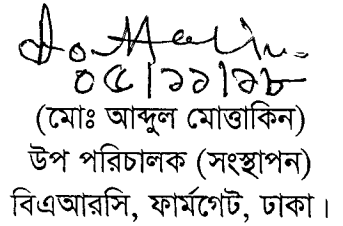 ০৫/১১/১৮
(মোঃ আব্দুল মোত্তাকিন)
উপ পরিচালক (সংস্থাপন)
বিএআরসি, ফার্মগেট, ঢাকা।